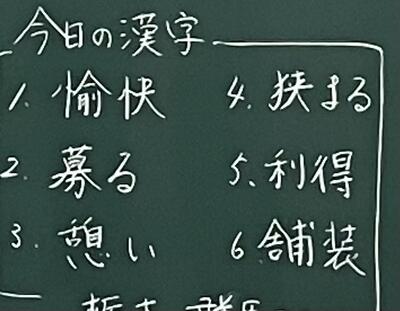 今日の漢字
1. 愉快
2. 募る
3. 憩い
4. 狭まる
5. 利得
6 舗装